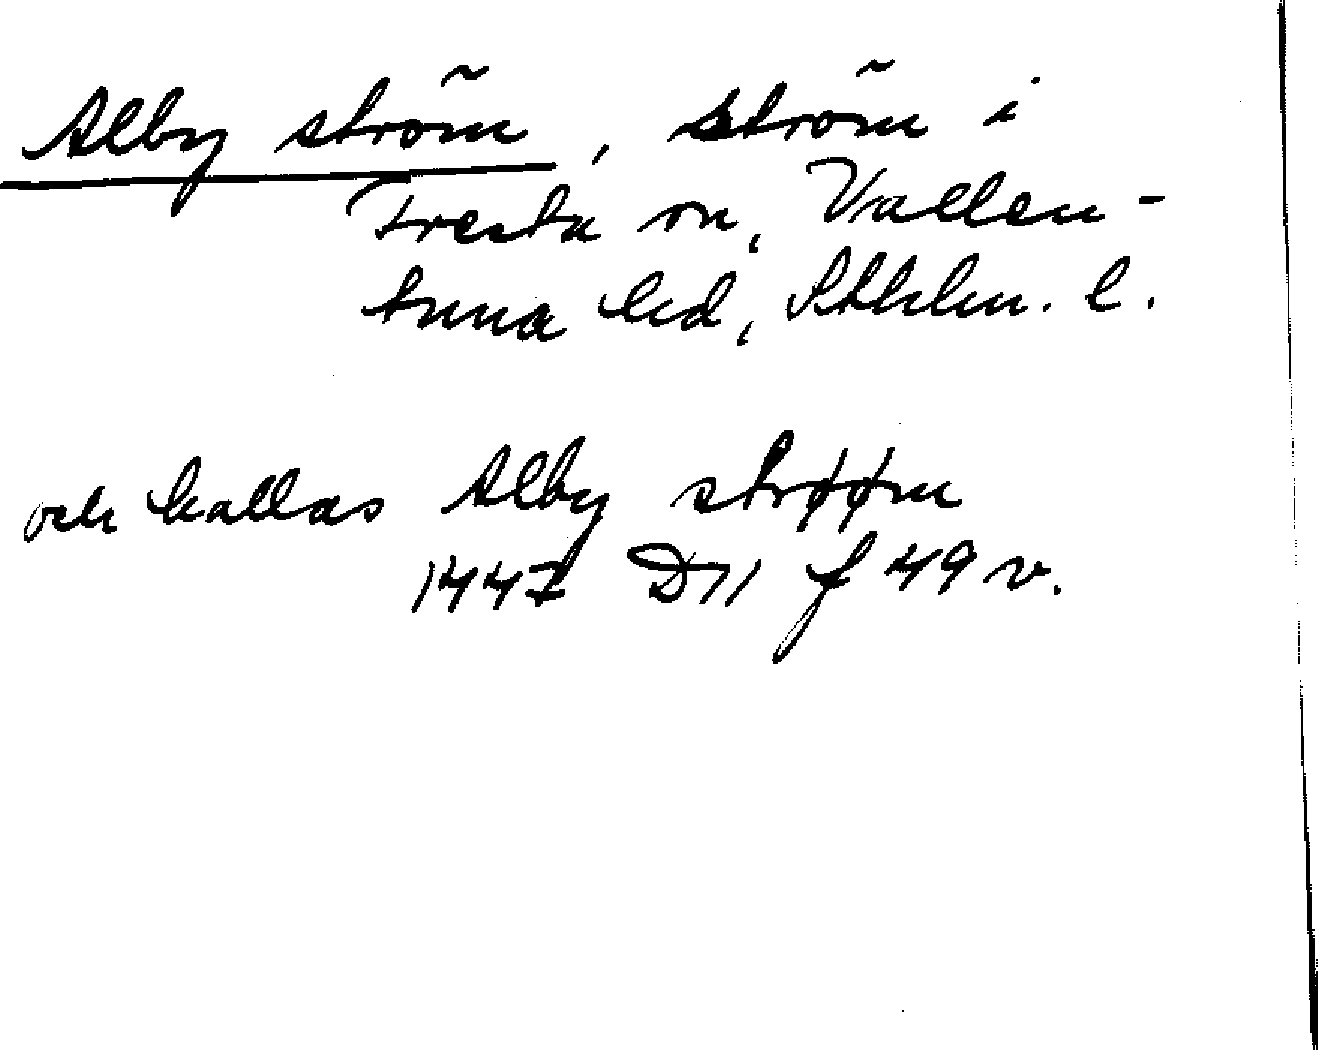 Alby ström, ström i
Fresta sn, Vallen-
tuna hd, Sthlm. l.
och kallas Alby strøøm
1447 D11 f 49 v.